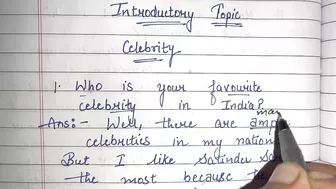 Introductory Topic
Celebrity
1. Who is your favourite
celebrity in India?
man
Ans:- Well, there are amp
celebrities in my nation
But I like Satinder Sa
the most because he